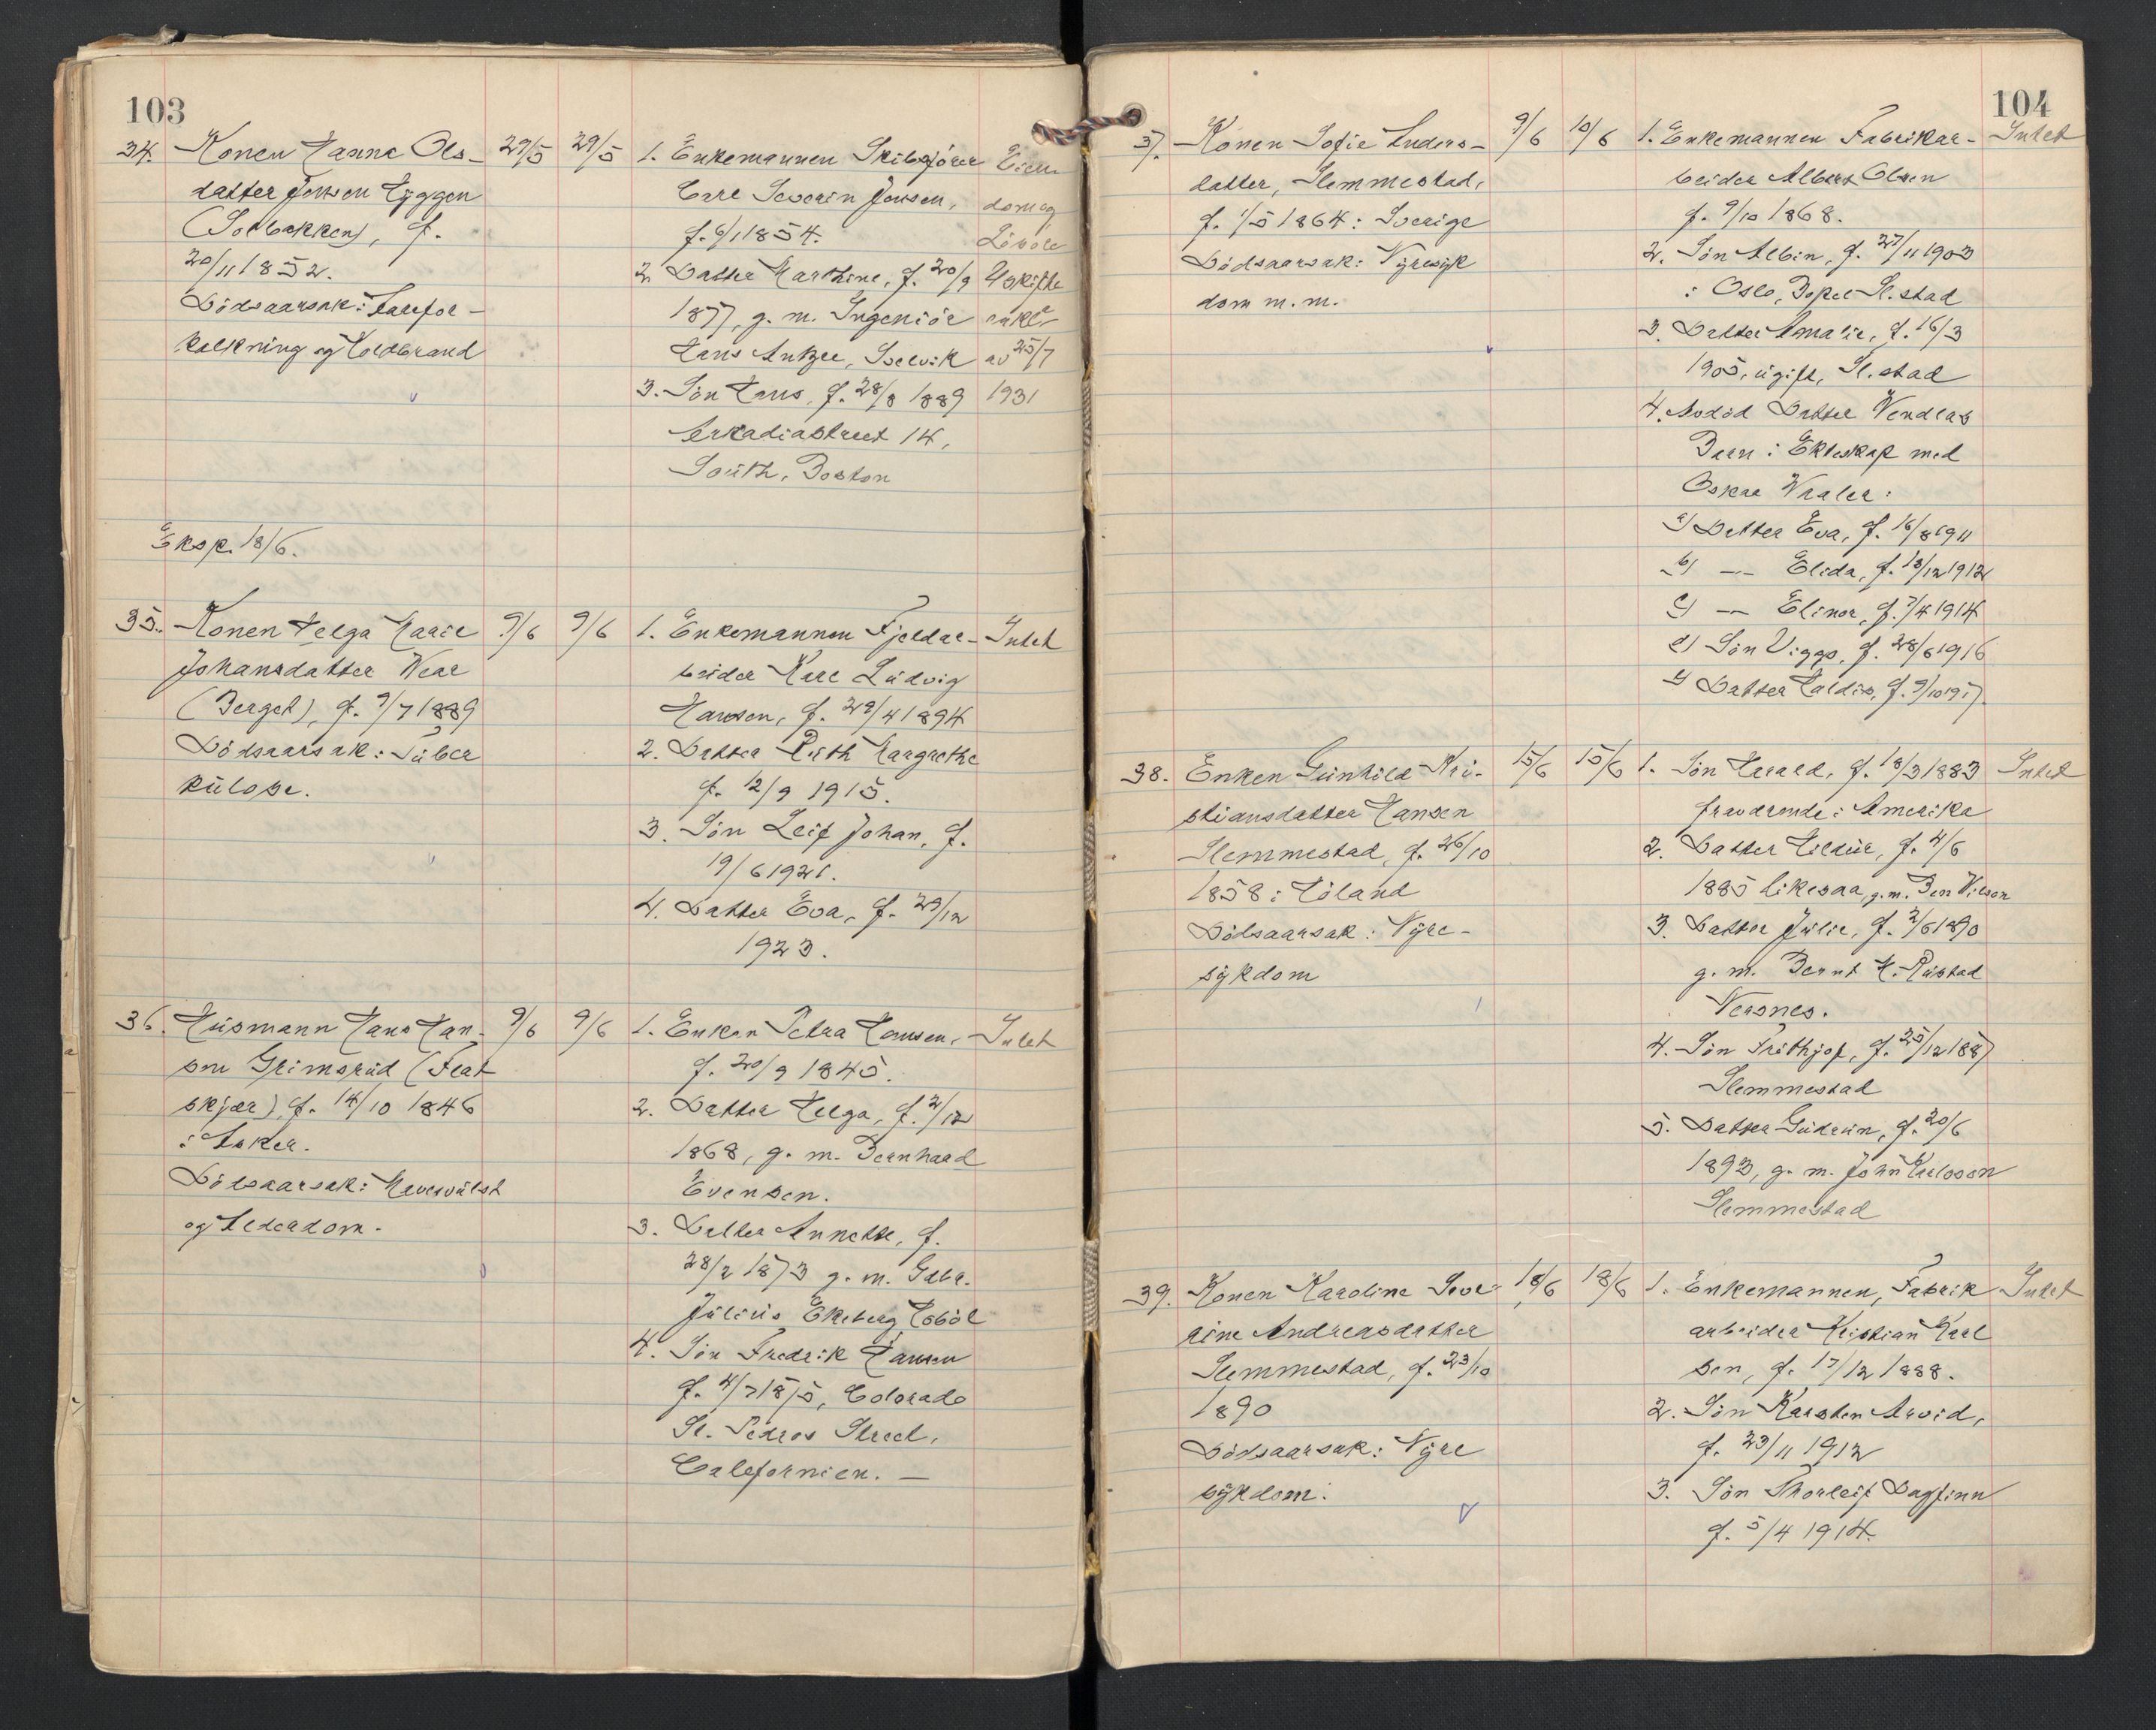 103
34. Konen Hanna Ols- 29/5 29/5
datter Jensen Hyggen
(Solbakken), f.
20/11 1852.
Dödsaarsak: Aarefor-
kalkning og Koldbrand
1. Enkemannen Skibsförer
Carl Severin Jensen,
f. 6/1 1854.
2. Datter Marthine, f. 20/9
1877, g. m. Ingeniör
Hans Antzee, Svelvik
3. Sön Hans, f. 28/8 1889
Arkadiastreet 14,
South, Boston
Eien
dom og
Lösöre
Uskifte
erkl.
av 25/7
1931
Eksp. 18/6.
35. Konen Helga Marie 9/6 9/6
Johansdatter Wear
(Berget), f. 9/7 1889
Dödsaarsak: Tuber
kulose.
1. Enkemannen Fjeldar- Intet
beider Karl Ludvig
Hansen, f. 29/4 1894
2. Datter Ruth Margrethe
f. 12/9 1915.
3. Sön Leif Johan, f.
19/6 1921.
4. Datter Eva, f. 29/12
1923.
36. Husmann Hans Han- 9/6 9/6
sen Grimsrud (Flat
skjær), f. 14/10 1846
i Asker.
Dödsaarsak: Mavesvulst
og Alderdom.
1. Enken Petra Hansen, Intet
f. 20/9 1845.
2. Datter Helga, f. 2/12
1868, g. m. Bernhard
Evensen.
3. Datter Annette, f.
28/2 1873 g. m. Gdbr.
Julius Ekeberg Hobøl
4. Sön Fredrik Hansen
f. 4/7 1875, Colorado
St. Pedros Street,
Californien. —
104
37. Konen Sofie Anders- 9/6 10/6
datter, Slemmestad,
f. 1/5 1864 i Sverige
Dödsaarsak: Nyresyk
dom m. m.
1. Enkemannen Fabrikar- Intet
beider Albert Olsen
f. 9/10 1868.
2. Sön Albin, f. 27/11 1903
i Oslo, Bopæl Sl.stad
3. Datter Amalie, f. 16/3
1905, ugift, Sl.stad
4. Avdöd Datter Vendlas
Barn i Ekteskap med
Oskar Waaler:
a) Datter Eva, f. 16/8 1911
b) — Elida, f. 13/12 1912
c) — Elinor, f. 7/4 1914
d) Sön Viggo, f. 28/6 1916
e) Datter Haldis, f. 9/10 1917.
38. Enken Gunhild Kri- 15/6 15/6
stiansdatter Hansen
Slemmestad, f. 26/10
1858 i Höland
Dödsaarsak: Nyre-
sykdom
1. Sön Harald, f. 18/3 1883 Intet
fraværende i Amerika
2. Datter Hildur, f. 4/6
1885 likesaa, g. m. Ben Wilson
3. Datter Julie, f. 2/6 1890
g. m. Bernt H. Rustad
Nersnes.
4. Sön Frithjof, f. 25/12 1887
Slemmestad
5. Datter Gudrun, f. 20/6
1893, g. m. John Karlsson
Slemmestad
39. Konen Karoline Seve- 18/6 18/6
rine Andreasdatter
Slemmestad, f. 23/10
1890
Dödsaarsak: Nyre
sykdom.
1. Enkemannen, Fabrik Intet
arbeider Kristian Karl
sen, f. 17/12 1888.
2. Sön Karsten Arvid,
f. 23/11 1912
3. Sön Thorleif Dagfinn
f. 5/4 1914.